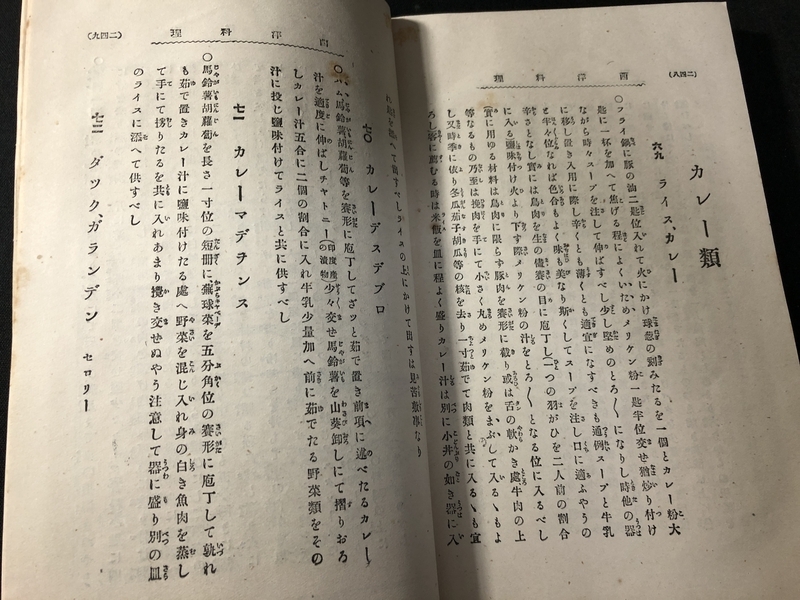 (二四八)
西洋料理
カレー類
六九 ライス、カレー
〇フライ鍋に豚の油二匙位入れて火にかけ球葱の刻みたるを一個とカレー粉大
匙に一杯を加へて焦げる程によくいためメリケン粉一匙半位交せ猶炒り付け
ながら時々スープを注して伸ばすべし少し堅めのとろ〱になりし時他の器
に移し置き入用に際し辛くとも薄くとも適宜になすべきも通例スープと牛乳
と半々位なれば色合もよく味も美なり斯くしてスープを注し口に適ふやうの
辛さとなし實には鳥肉を生の儘賽の目に庖丁し(一つの羽がひを二人前の割合
に入る鹽味付け火より下す際メリケン粉の汁をとろ〱となる位に入るべし
(實に用ゆる材料は鳥肉に限らず豚肉を賽形に截り或は舌の軟かき處牛肉の上
等なるもの乃至は挽肉を手にて小さく丸めメリケン粉をまぶして入るゝもよ
し又時季に依り冬瓜茄子胡瓜等の核を去り一寸茹でて肉類と共に入るゝも宜
ろし客に薦むる時は米飯を皿に程よく盛りカレー汁は別に小丼の如き器に入
へて出すべしライスの上にかけて出すは見苦敷事なり
(二四九)
西洋料理
七〇 カレーデスデブロ
〇ハム馬鈴薯胡蘿蔔等を賽形に庖丁してざツと茹で置き前項に述べたるカレー
汁を適度に伸ばしチヤトニー(印度産の漬物)少々交せ馬鈴薯を山葵卸しにて擂りおろ
しカレー汁五合に二個の割合に入れ牛乳少量加へ前に茹でたる野菜類をその
汁に投じ鹽味付けてライスと共に供すべし
七一 カレーマデランス
〇馬鈴薯胡蘿蔔を長さ一寸位の短冊に蕪球菜を五分角位の賽形に庖丁して孰れ
も茹で置きカレー汁に鹽味付けたる處へ野菜を混じ入れ身の白き魚肉を蒸し
て手にて拷りたるを共に入れあまり攪き交せぬやう注意して器に盛り別の皿
のライスに添へて供すべし
七二 ダツク、ガランデン セロリー